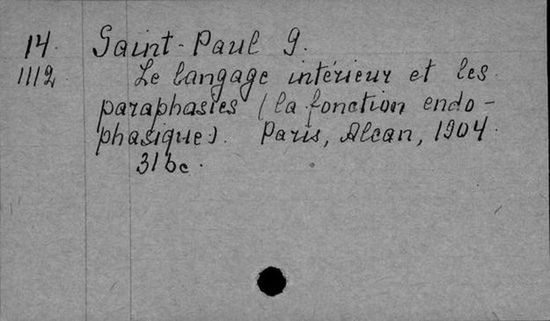 14. Saint-Paul G.
1112 Le langage intérieur et les
paraphasies (la fonction endo-
phasique). Paris, Alcan, 1904.
316c.